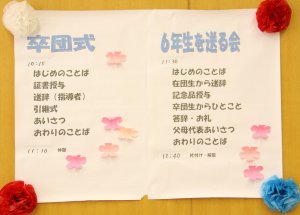 卒団式
10:15
はじめのことば
証書授与
送辞（指導者）
引継式
あいさつ
おわりのことば
11:10 休憩
6年生を送る会
11:30
はじめのことば
在団生から送辞
記念品授与
卒団生からひとこと
答辞・お礼
父母代表あいさつ
おわりのことば
12:40 片付け・解散